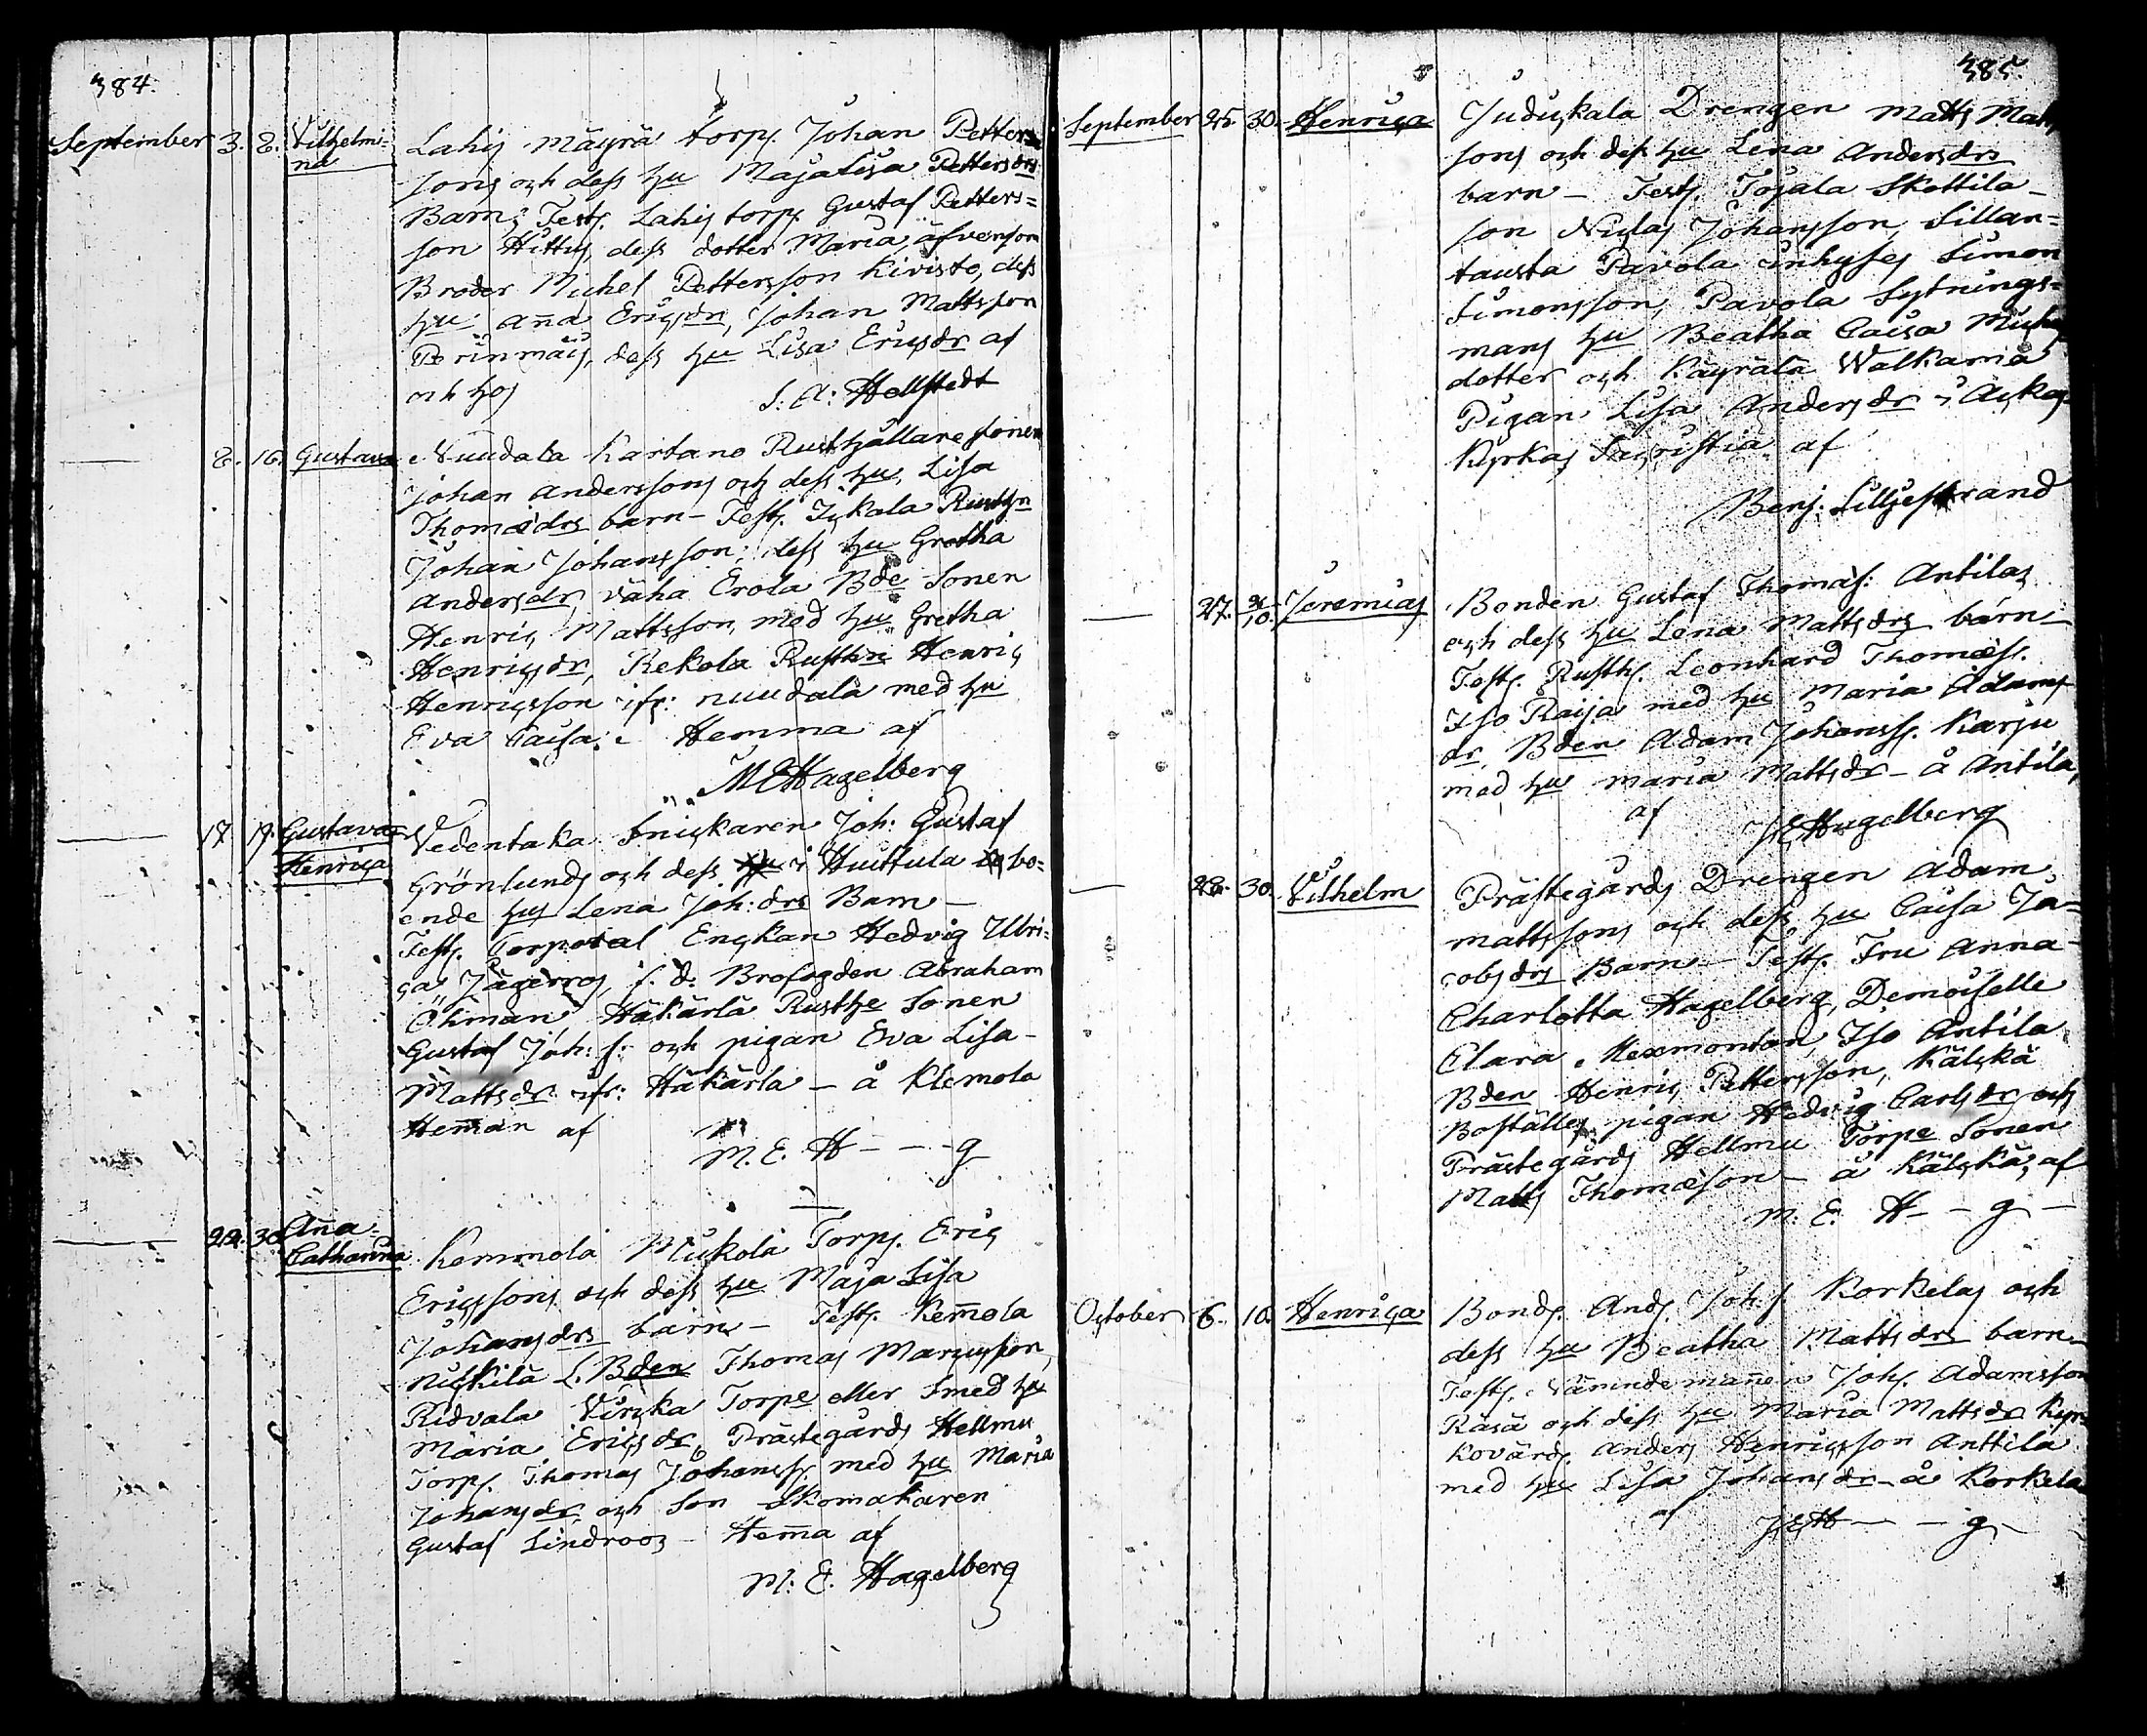 384.
September 3. 8. Vilhelmi-
na
Lahis Mäyrä torp. Johan Petters
sons och dess hu Majalisa Pettersdrs
Barn; Test. Lahis torp. Gustaf Petters=
son Hittus, dess dotter Maria, äfvensom
Broder Michel Pettersson Kivisto, dess
hu Anna Ericsdr, Johan Mattsson
dess hu Lisa Ericsdr af
och hos S: A: Hellstedt
8. 16. Gustava Nuudala Kartano Rusthållare sonen
Johan Anderssons och dess hu, Lisa
Thomædrs barn - Test. Ickala Rusth
Johan Johansson; dess hu Gretha
Andersdr, väha Erola Bde Sonen
Henric Mattsson, med hu Gretha
Henricsdr, Rekola Rusth Henric
Henricsson ifr: nuudala med hu
Eva Caisa: Hemma af
M E Hagelberg
17. 19. Gustava
Henrica
Vedentaka Snickaren Joh: Gustaf
Grönlunds och dess i Huittula bo=
ende hus Lena Joh:drs Barn -
Test. Corporal Enckan Hedvig Ulri=
ca Jägerros, f. d. Brofogden Abraham
Öhman Häkärlä Rusthe Sonen
Gustaf Joh: s: och pigan Eva Lisa
Mattsdr ifr: Häkärla - å Klemola
Hemman af
M. E. H - - - g
22. 30. Anna
Catharina
Kemmola Mickola Torp. Eric
Ericssons och dess hu Maja Lisa
Johansdrs barn - Test. Kemmola
Nickilä L. Bden Thomas Marcusson,
Ridvala Torpe eller Smed hu
Maria Ericsdr, Prästegårds Hellmu
Torp. Thomas Johanss. med hu Maria
Johansdr, och Son Skomakaren
Gustaf Lindroos - Hemma af
M: E. Hagelberg
385.
September 25. 30. Henrica
Judickala Drengen Matts Matts
sons och dess hu Lena Andersdrs
barn - Test. Tojala Skottila-
son Niclas Johansson, Sillan=
tausta Pavola inhyses Simon
Simonsson, Pavola Sytnings=
mans hu Beatha Caisa Michels
dotter och Käyrälä Walkama
Pigan Lisa Andersdr i Ackas
Kyrkas Sacristia af
Benj. Lilljestrand
27. 10. Jeremias
Bonden Gustaf Thomæs: Antilas
och dess hu Lena Mattsdrs barn -
Test. Rusth. Leonhard Thomæss.
Iso Raija med hu Maria Adams
dr, Bden Adam Johanss. Karju
med hu Maria Mattsdr - å Antila,
af
M E Hagelberg
28. 30. Vilhelm
Prästegårds Drengen Adam
Mattssons och dess hu Caisa Ja=
cobsdrs Barn - Test. Fru Anna
Charlotta Hagelberg, Demoiselle
Clara Mexmontan, Iso Antila
Bden Henric Pettersson, Kälckä
Boställes pigan Hedvig Carlsdr och
Prästegårds Hellmu Torpe Sonen
Matts Thomæson - å Kälckä, af
M. E. H - - g -
October 6. 10. Henrica
Bond. And. Joh. s. Korkelas och
dess hu Beatha Mattsdrs barn -
Test. Nämndemannen Joh. Adamsson
Räsä och dess hu Maria Mattsdr Kyr
kovärd. Anders Henricsson Anttila
med hu Lisa Johansdr - å Korkela
af
M E H - - g -